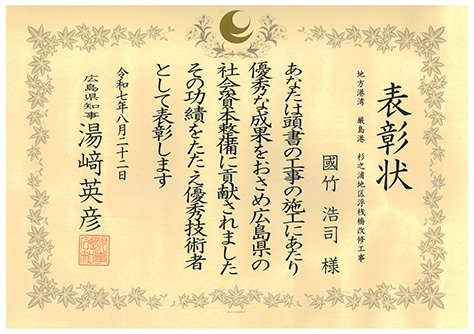 表彰状
地方港湾 厳島港 杉之浦地区浮桟橋改修工事
國竹 浩司 様
あなたは頭書の工事の施工にあたり
優秀な成果をおさめ広島県の
社会資本整備に貢献されました
その功績をたたえ優秀技術者
として表彰します
令和七年八月二十二日
広島県知事 湯﨑英彦